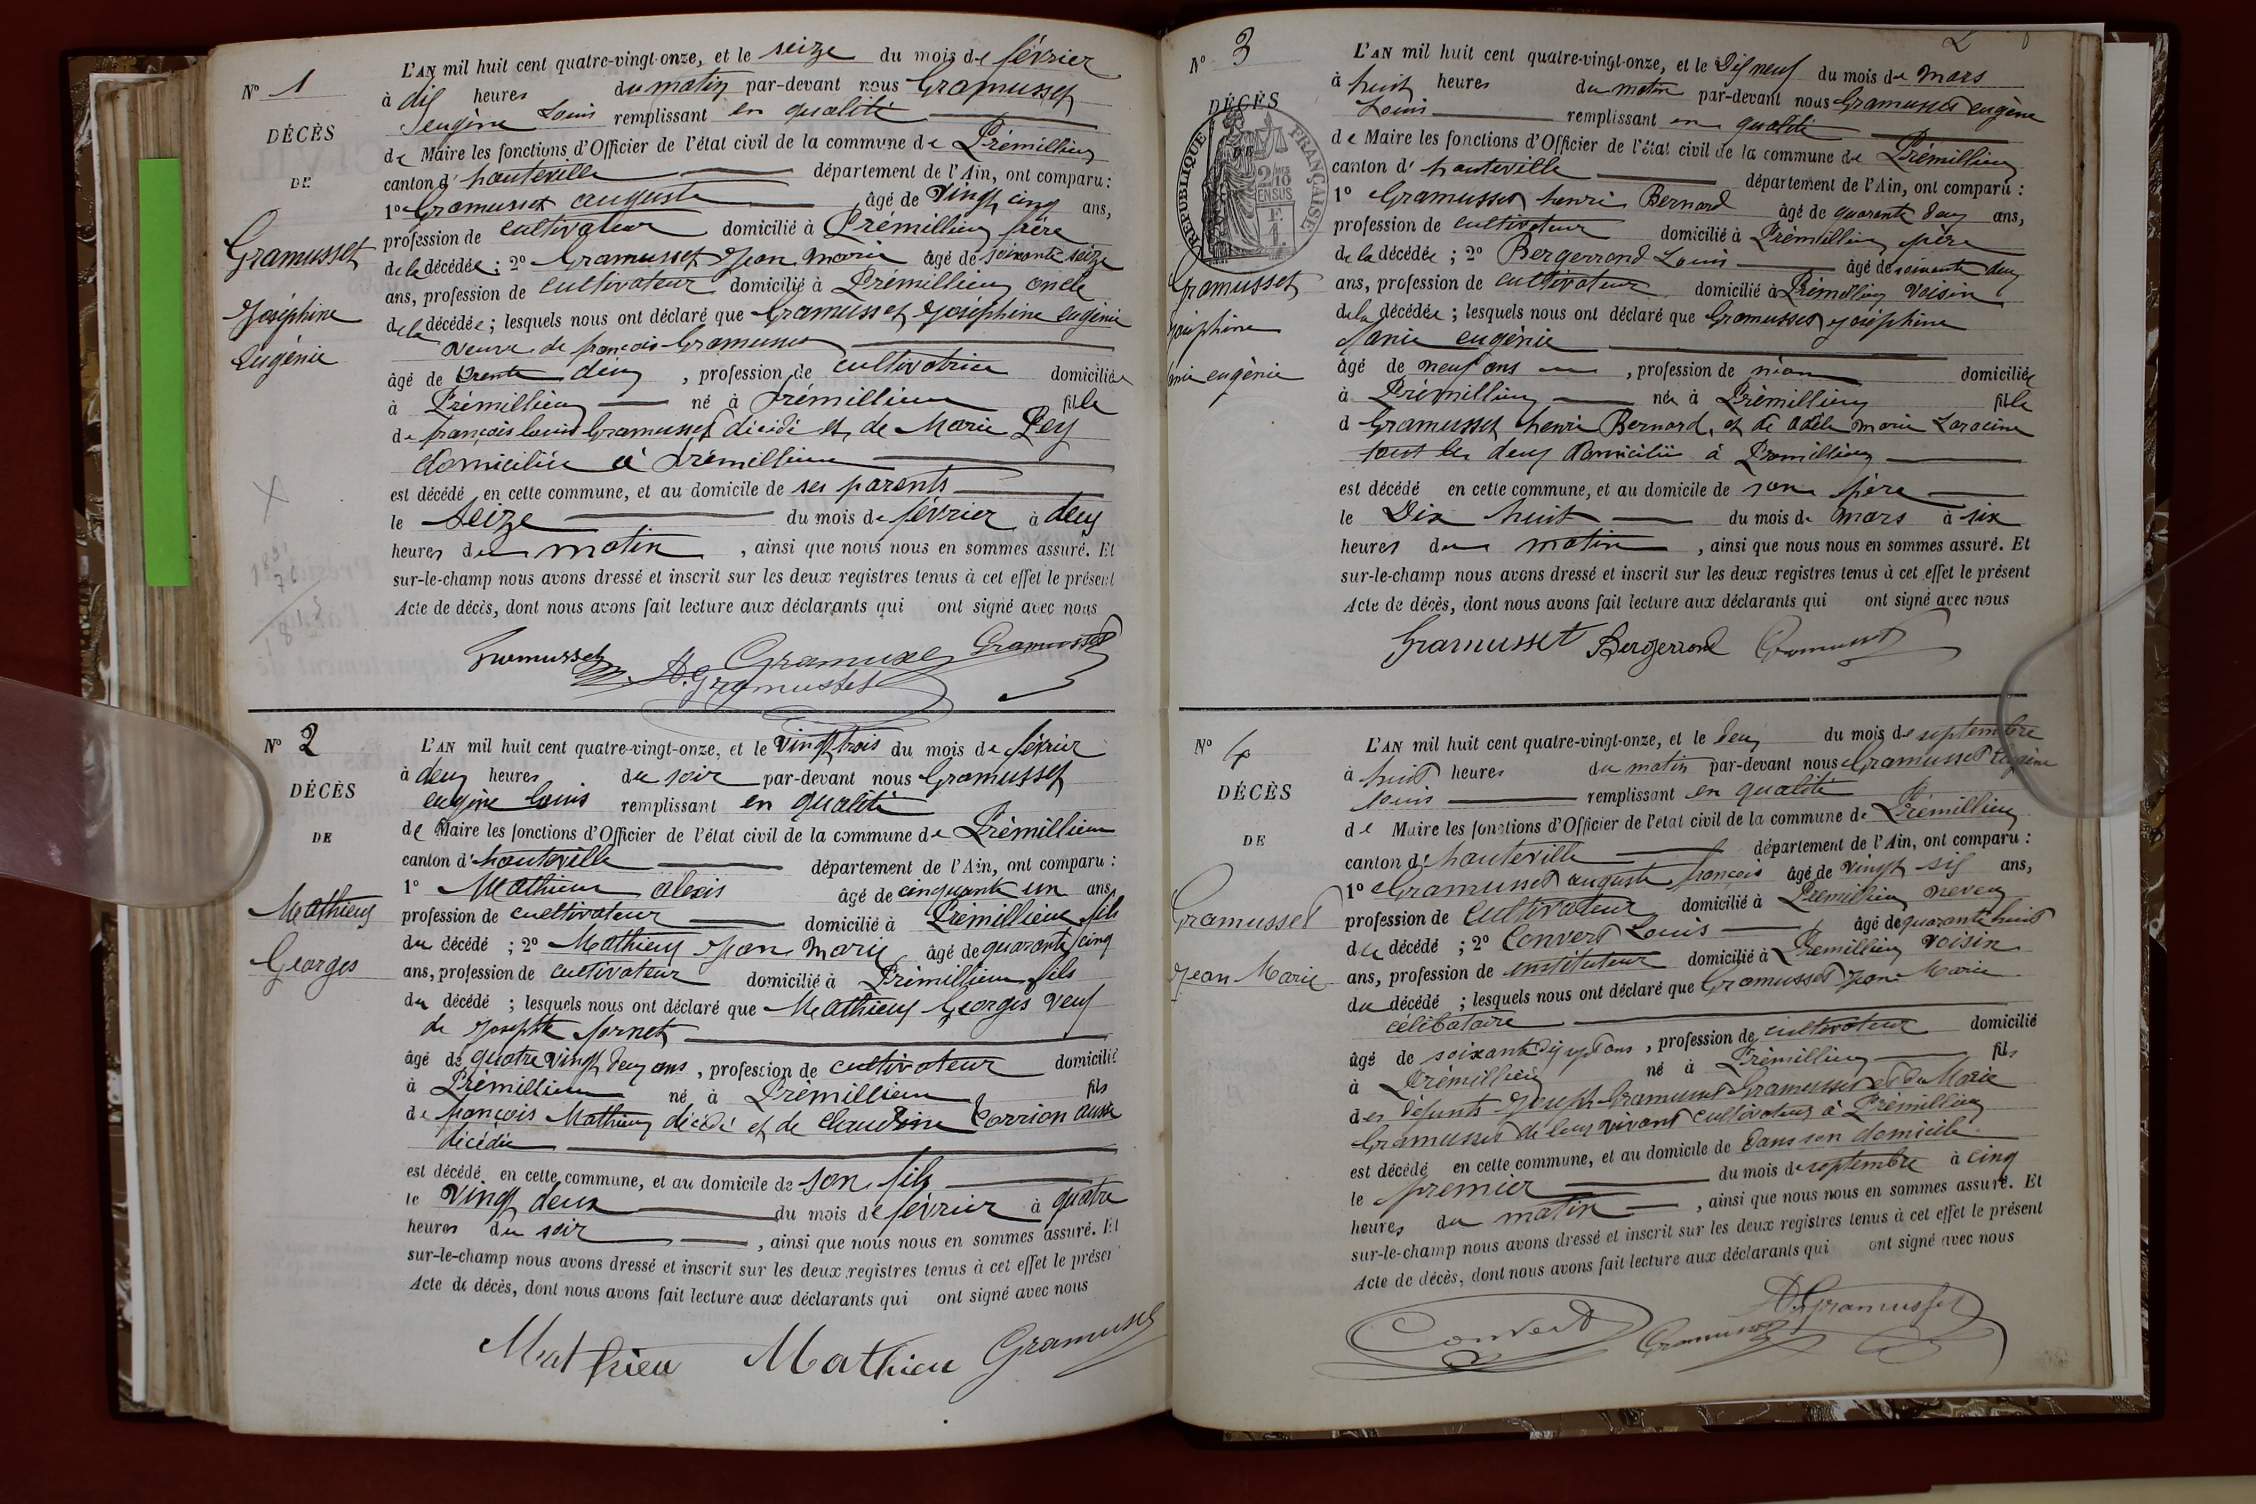 N° 1
DÉCÈS
DE
Gramusset
Joséphine
Eugénie
L'AN mil huit cent quatre-vingt-onze, et le seize du mois de février
à dix heures du matin par-devant nous Gramusset
eugène Louis remplissant en qualité
de Maire les fonctions d'Officier de l'état civil de la commune de Prémillieu
canton d' hauteville département de l'Ain, ont comparu :
1° Gramusset auguste âgé de vingt cinq ans,
profession de cultivateur domicilié à Prémillieu frère
de la décédée ; 2° Gramusset Jean Marie âgé de soixante seize
ans, profession de cultivateur domicilié à Prémillieu oncle
de la décédée ; lesquels nous ont déclaré que Gramusset Joséphine eugénie
veuve de françois Gramusset
âgé de trente deux , profession de cultivatrice domiciliée
à Prémillieu né à Prémillieu fille
de françois Louis Gramusset décédé et de Marie Pey
domiciliée à Prémillieu
est décédé en cette commune, et au domicile de ses parents
le Seize du mois de février à deux
heures du matin , ainsi que nous nous en sommes assuré. Et
sur-le-champ nous avons dressé et inscrit sur les deux registres tenus à cet effet le présent
Acte de décès, dont nous avons fait lecture aux déclarants qui ont signé avec nous
Gramusset Gramusset Gramusset
A. Gramusset
N° 2
DÉCÈS
DE
Mathieu
Georges
L'AN mil huit cent quatre-vingt-onze, et le vingt trois du mois de février
à deux heures du soir par-devant nous Gramusset
eugène Louis remplissant en qualité
de Maire les fonctions d'Officier de l'état civil de la commune de Prémillieu
canton d' hauteville département de l'Ain, ont comparu :
1° Mathieu alexis âgé de cinquante un ans,
profession de cultivateur domicilié à Prémillieu fils
du décédé ; 2° Mathieu Jean Marie âgé de quarante cinq
ans, profession de cultivateur domicilié à Prémillieu fils
du décédé ; lesquels nous ont déclaré que Mathieu Georges veuf
de Josephte
âgé de quatre vingt deux ans , profession de cultivateur domicilié
à Prémillieu né à Prémillieu fils
de françois Mathieu décédé et de Claudine Carrion aussi
décédée
est décédé en cette commune, et au domicile de son fils
le vingt deux du mois de février à quatre
heures du soir , ainsi que nous nous en sommes assuré. Et
sur-le-champ nous avons dressé et inscrit sur les deux registres tenus à cet effet le présen
Acte de décès, dont nous avons fait lecture aux déclarants qui ont signé avec nous
Mathieu Mathieu Gramusset
N° 3
DÉCÈS
RÉPUBLIQUE FRANÇAISE
2/10 EN SUS
Gramusset
Joséphine
eugénie
L'AN mil huit cent quatre-vingt-onze, et le Dix neuf du mois de mars
à huit heures du matin par-devant nous Gramusset eugène
Louis remplissant en qualité
de Maire les fonctions d'Officier de l'état civil de la commune de Prémillieu
canton d' hauteville département de l'Ain, ont comparu :
1° Gramusset henri Bernard âgé de quarante deux ans,
profession de cultivateur domicilié à Prémillieu père
de la décédée ; 2° Bergerrond Louis âgé de soixante deux
ans, profession de cultivateur domicilié à Prémillieu voisin
de la décédée ; lesquels nous ont déclaré que Gramusset Joséphine
Marie eugénie
âgé de neuf ans , profession de néan domiciliée
à Prémillieu née à Prémillieu fille
d Gramusset henri Bernard, et de adèle marie Laracine
tout les deux domiciliés à Prémillieu
est décédé en cette commune, et au domicile de son père
le Dix huit du mois de mars à six
heures du matin , ainsi que nous nous en sommes assuré. Et
sur-le-champ nous avons dressé et inscrit sur les deux registres tenus à cet effet le présent
Acte de décès, dont nous avons fait lecture aux déclarants qui ont signé avec nous
Gramusset Bergerrond Gramusset
N° 4
DÉCÈS
DE
Gramusset
Jean Marie
L'AN mil huit cent quatre-vingt-onze, et le deux du mois de septembre
à huit heures du matin par-devant nous Gramusset Eugène
Louis remplissant en qualité
de Maire les fonctions d'Officier de l'état civil de la commune de Prémillieu
canton d' hauteville département de l'Ain, ont comparu :
1° Gramusset auguste françois âgé de vingt six ans,
profession de cultivateur domicilié à Prémillieu neveu
du décédé ; 2° Convert Louis âgé de quarante huit
ans, profession de instituteur domicilié à Prémillieu voisin
du décédé ; lesquels nous ont déclaré que Gramusset Jean Marie
célibataire
âgé de soixante dix sept ans , profession de cultivateur domicilié
à Prémillieu né à Prémillieu fils
des défunts Joseph Gramusset et de Marie
Gramusset de leur vivant cultivateurs à Prémillieu
est décédé en cette commune, et au domicile de Dans son domicile
le premier du mois de septembre à cinq
heures du matin , ainsi que nous nous en sommes assuré. Et
sur-le-champ nous avons dressé et inscrit sur les deux registres tenus à cet effet le présent
Acte de décès, dont nous avons fait lecture aux déclarants qui ont signé avec nous
Convert Gramusset A. Gramusset